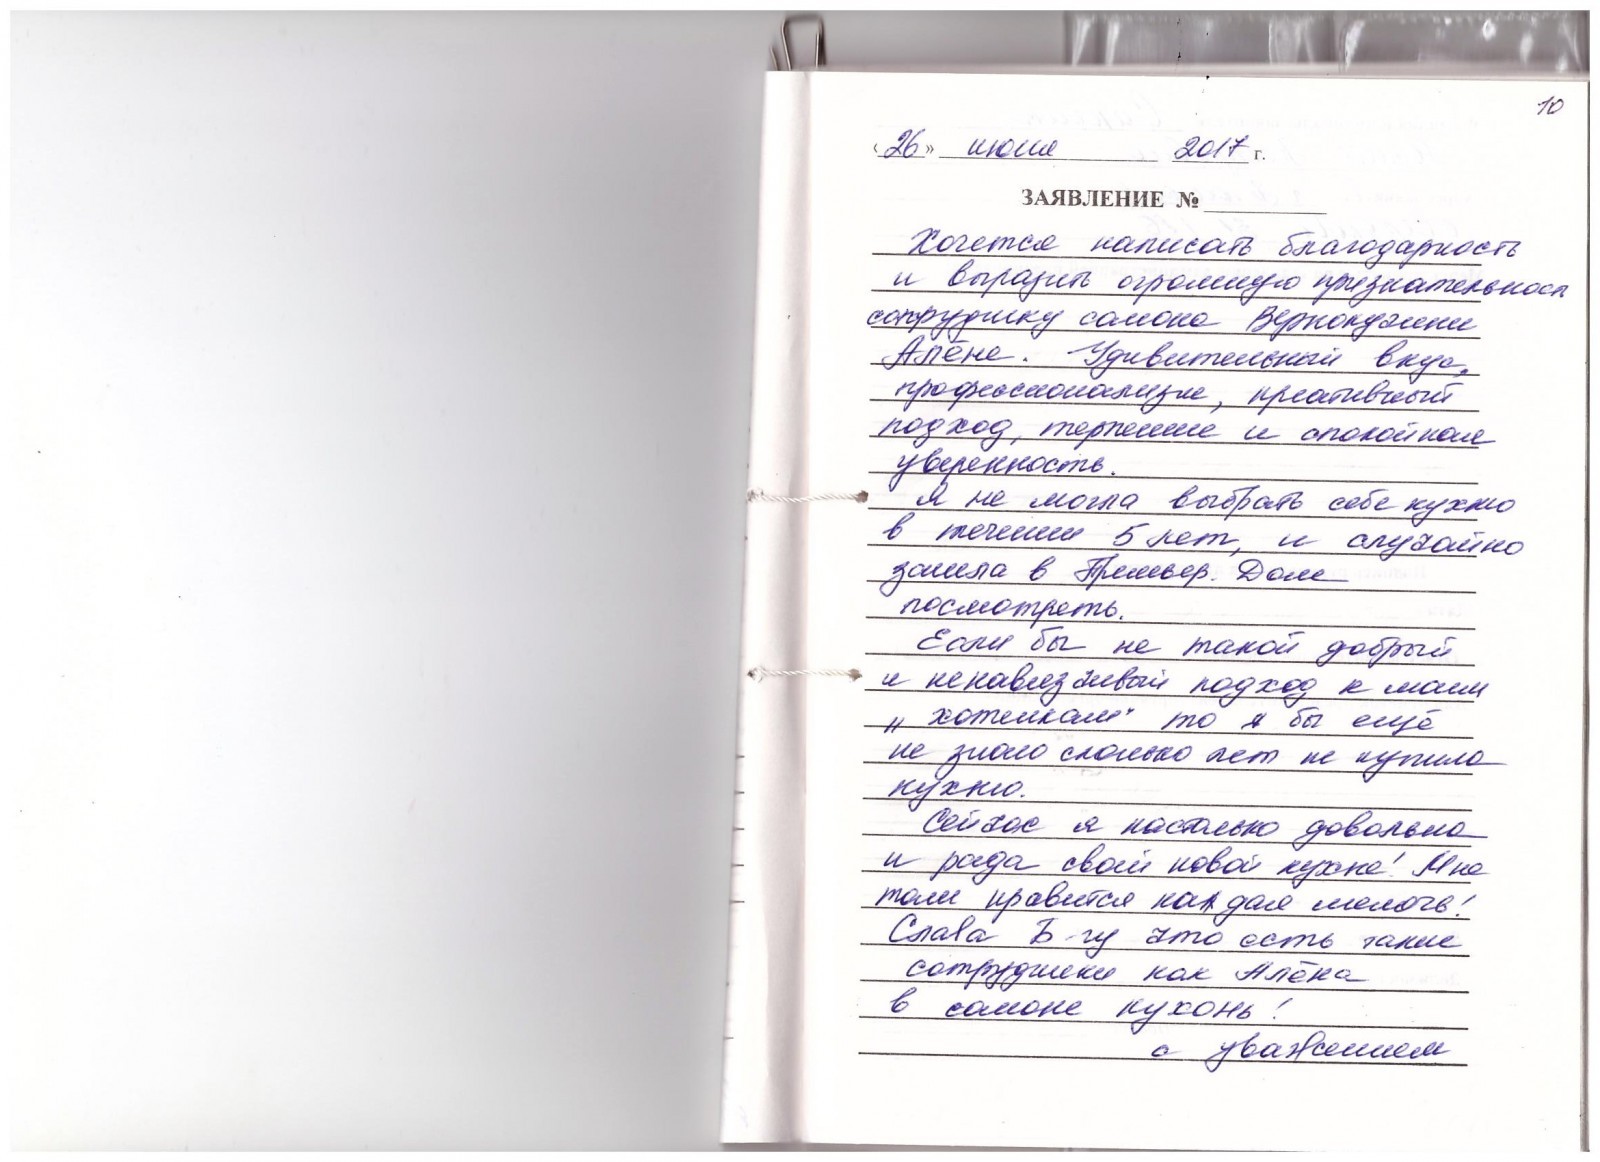 10
«26» июня 2017 г.
ЗАЯВЛЕНИЕ №
Хочется написать благодарность
и выразить огромную признательность
сотруднику салона
Алёне. Удивительный вкус,
профессионализм, креативный
подход, терпение и спокойная
уверенность.
Я не могла выбрать себе кухню
в течении 5 лет, и случайно
зашла в Премьер Дом
посмотреть.
Если бы не такой добрый
и ненавязчивый подход к моим
„хотелкам" то я бы ещё
не знаю сколько лет не купила
кухню.
Сейчас я настолько довольна
и рада своей новой кухне! Мне
там нравится каждая мелочь!
Слава Б-гу что есть такие
сотрудники как Алёна
в салоне кухонь!
с уважением